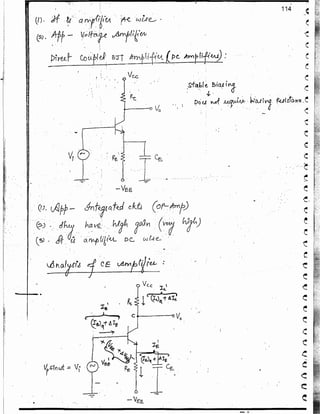 114
(1). It is amplifier AC wise.
(2). App – Voltage Amplifier
Direct Coupled BJT Amplifier (DC Amplifier) :
Vcc
Rc
Vo
Stable Biasing
↓
Does not require biasing Resistors.
Vi
RE
CE
-VEE
(1). App – Integrated ckts (Op-Amp)
(2) . they have high gain (very high)
(3) . It is amplifier DC wise.
Analysis of CE Amplifier :
Vcc
Rc
Ic'
(Ic)Q + ΔIc
C
Vo
IB'
(IB)Q + ΔIB
VBE'
IE'
(IE)Q + ΔIE
Vi
RE
CE
-VEE